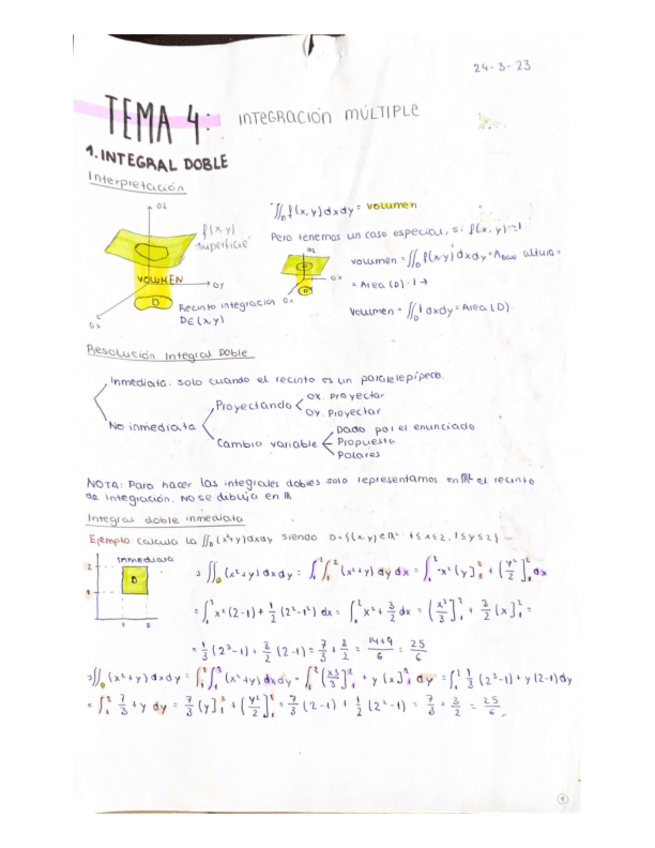 24-3-23
TEMA 4: INTEGRACIÓN MÚLTIPLE
1. INTEGRAL DOBLE
Interpretación
OZ
f(x,y)
superficie
VOLUMEN
OY
D
OX
Recinto integración
D∈(x,y)
∬_D f(x,y)dxdy = volumen
Pero tenemos un caso especial, si f(x,y)=1
OX
volumen = ∬_D f(x,y) dxdy = A_base altura =
= Area (D) · 1 →
Volumen = ∬_D 1 dxdy = Area (D).
Resolución Integral Doble
Inmediata: solo cuando el recinto es un paralelepípedo.
No inmediata
Proyectando
OX. Proyectar
OY. Proyectar
Cambio variable
Dado por el enunciado
Propuesto
Polares
NOTA: Para hacer las integrales dobles solo representamos en ℝ² el recinto
de integración. No se dibuja en ℝ
Integral doble inmediata
Ejemplo calcula la ∬_D (x²+y)dxdy siendo D={(x,y)∈ℝ² 1≤x≤2, 1≤y≤2}
Inmediata
2
1
D
1 2
∬_D (x²+y)dxdy = ∫₁² ∫₁² (x²+y) dy dx = ∫₁² x² (y]₁² + (y²/2]₁² dx
= ∫₁² x²(2-1) + 1/2 (2²-1²) dx = ∫₁² x² + 3/2 dx = (x³/3]₁² + 3/2 (x]₁² =
= 1/3 (2³-1) + 3/2 (2-1) = 7/3 + 3/2 = 14+9/6 = 25/6
∬_D (x²+y)dxdy = ∫₁² ∫₁² (x²+y) dxdy = ∫₁² (x³/3]₁² + y (x]₁² dy = ∫₁² 1/3 (2³-1) + y (2-1)dy
= ∫₁² 7/3 + y dy = 7/3 (y]₁² + (y²/2]₁² = 7/3 (2-1) + 1/2 (2²-1) = 7/3 + 3/2 = 25/6
1